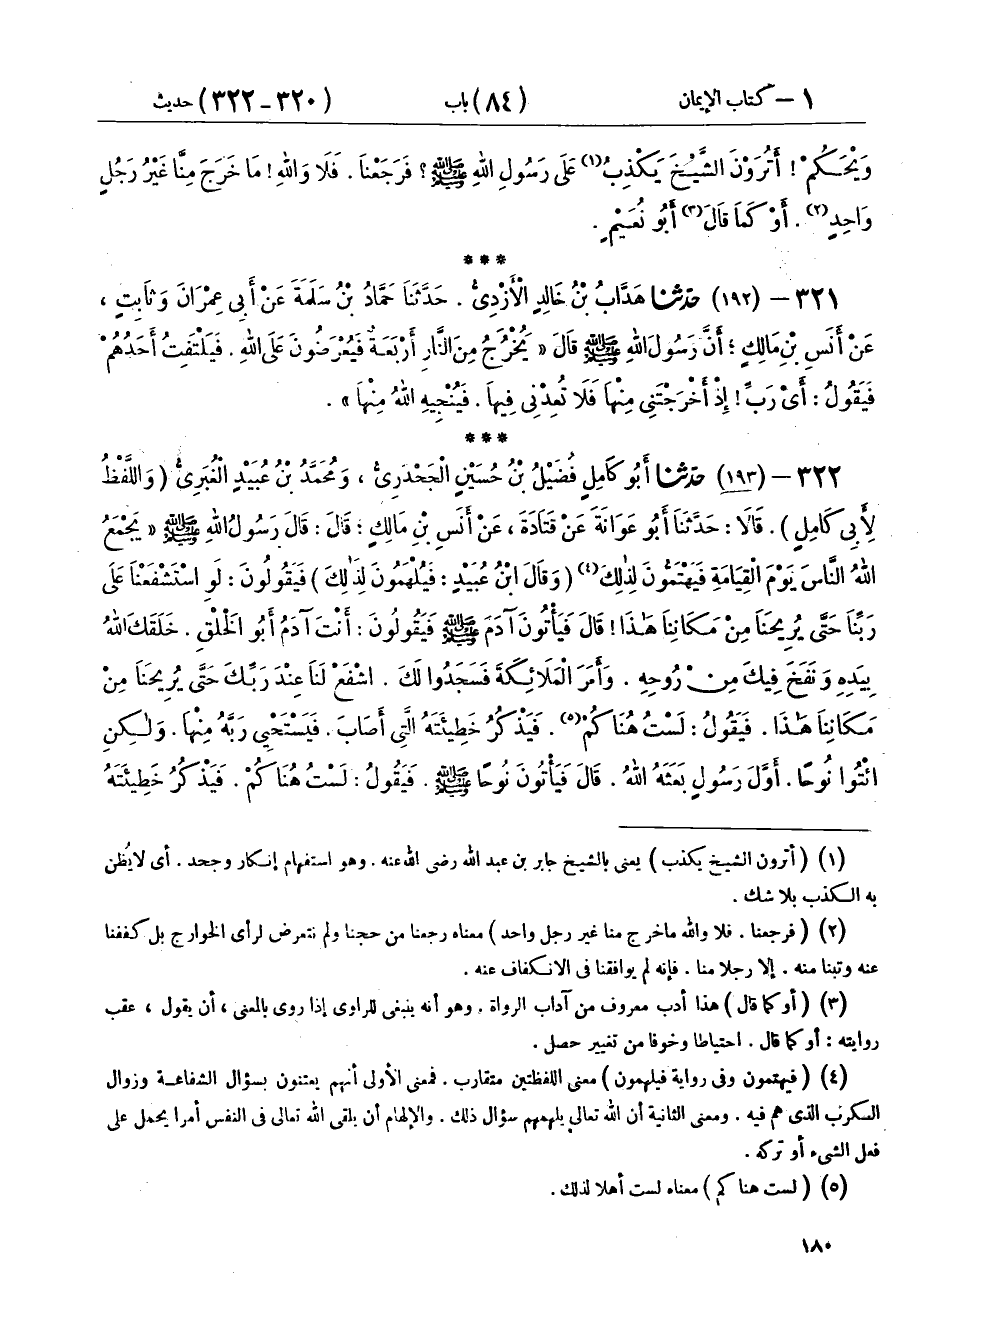 ١ – كتاب الإيمان (٨٤) باب (٣٢٠ – ٣٢٢) حديث
وَيْحَكُمْ ! أَتُرَوْنَ الشَّيْخَ يَكْذِبُ(١) عَلَى رَسُولِ اللهِ ﷺ ؟ فَرَجَعْنَا . فَلَا وَاللهِ ! مَا خَرَجَ مِنَّا غَيْرُ رَجُلٍ
وَاحِدٍ(٢) . أَوْ كَمَا قَالَ(٣) أَبُو نُعَيْمٍ .
***
٣٢١ – (١٩٢) حَدَّثَنَا هَدَّابُ بْنُ خَالِدٍ الْأَزْدِىُّ . حَدَّثَنَا حَمَّادُ بْنُ سَلَمَةَ عَنْ أَبِى عِمْرَانَ وَثَابِتٍ ،
عَنْ أَنَسِ بْنِ مَالِكٍ ؛ أَنَّ رَسُولَ اللهِ ﷺ قَالَ « يَخْرُجُ مِنَ النَّارِ أَرْبَعَةٌ فَيُعْرَضُونَ عَلَى اللهِ . فَيَلْتَفِتُ أَحَدُهُمْ
فَيَقُولُ : أَىْ رَبِّ ! إِذْ أَخْرَجْتَنِى مِنْهَا فَلَا تُعِدْنِى فِيهَا . فَيُنْجِيهِ اللهُ مِنْهَا » .
***
٣٢٢ – (١٩٣) حَدَّثَنَا أَبُو كَامِلٍ فُضَيْلُ بْنُ حُسَيْنٍ الْجَحْدَرِىُّ ، وَمُحَمَّدُ بْنُ عُبَيْدٍ الْغُبَرِىُّ ( وَاللَّفْظُ
لِأَبِى كَامِلٍ ) . قَالَا : حَدَّثَنَا أَبُو عَوَانَةَ عَنْ قَتَادَةَ ، عَنْ أَنَسِ بْنِ مَالِكٍ ؛ قَالَ : قَالَ رَسُولُ اللهِ ﷺ « يَجْمَعُ
اللهُ النَّاسَ يَوْمَ الْقِيَامَةِ فَيَهْتَمُّونَ لِذَلِكَ(٤) ( وَقَالَ ابْنُ عُبَيْدٍ : فَيُلْهَمُونَ لِذَلِكَ ) فَيَقُولُونَ : لَوِ اسْتَشْفَعْنَا عَلَى
رَبِّنَا حَتَّى يُرِيحَنَا مِنْ مَكَانِنَا هَذَا ! قَالَ فَيَأْتُونَ آدَمَ ﷺ فَيَقُولُونَ : أَنْتَ آدَمُ أَبُو الْخَلْقِ . خَلَقَكَ اللهُ
بِيَدِهِ وَنَفَخَ فِيكَ مِنْ رُوحِهِ . وَأَمَرَ الْمَلَائِكَةَ فَسَجَدُوا لَكَ . اشْفَعْ لَنَا عِنْدَ رَبِّكَ حَتَّى يُرِيحَنَا مِنْ
مَكَانِنَا هَذَا . فَيَقُولُ : لَسْتُ هُنَاكُمْ(٥) . فَيَذْكُرُ خَطِيئَتَهُ الَّتِى أَصَابَ . فَيَسْتَحْيِى رَبَّهُ مِنْهَا . وَلَكِنِ
ائْتُوا نُوحًا . أَوَّلَ رَسُولٍ بَعَثَهُ اللهُ . قَالَ فَيَأْتُونَ نُوحًا ﷺ . فَيَقُولُ : لَسْتُ هُنَاكُمْ . فَيَذْكُرُ خَطِيئَتَهُ
(١) ( أترون الشيخ يكذب ) يعنى بالشيخ جابر بن عبد الله رضى الله عنه . وهو استفهام إنكار وجحد . أى لا يُظن
به الكذب بلا شك .
(٢) ( فرجعنا . فلا والله ما خرج منا غير رجل واحد ) معناه رجعنا من حجنا ولم نتعرض لرأى الخوارج بل كففنا
عنه وتبنا منه . إلا رجلا منا . فإنه لم يوافقنا فى الانكفاف عنه .
(٣) ( أو كما قال ) هذا أدب معروف من آداب الرواة . وهو أنه ينبغى للراوى إذا روى بالمعنى ، أن يقول ، عقب
روايته : أو كما قال . احتياطا وخوفا من تغيير حصل .
(٤) ( فيهتمون وفى رواية فيلهمون ) معنى اللفظتين متقارب . فمعنى الأولى أنهم يعتنون بسؤال الشفاعة وزوال
الكرب الذى هم فيه . ومعنى الثانية أن الله تعالى يلهمهم سؤال ذلك . والإلهام أن يلقى الله تعالى فى النفس أمرا يحمل على
فعل الشىء أو تركه .
(٥) ( لست هناكم ) معناه لست أهلا لذلك .
١٨٠